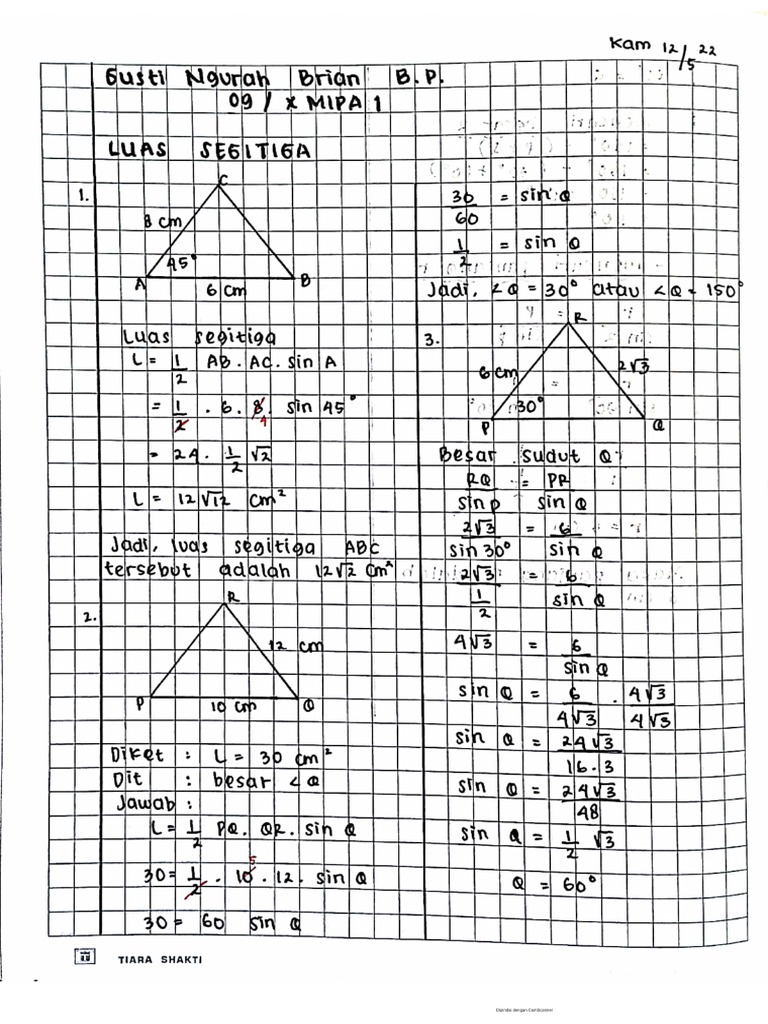 Kam 12/5 22
Gusti Ngurah Brian B.P.
09 / X MIPA 1
LUAS SEGITIGA
1.
C
8 cm
45°
A
6 cm
B
Luas segitiga
L = 1/2 AB . AC . sin A
= 1/2 . 6 . 8 . sin 45°
4
= 24 . 1/2 √2
L = 12 √12 cm²
Jadi, luas segitiga ABC
tersebut adalah 12√2 cm²
2.
R
12 cm
P
10 cm
Q
Diket : L = 30 cm²
Dit : besar ∠Q
Jawab :
L = 1/2 PQ . QR . sin Q
5
30 = 1/2 . 10 . 12 . sin Q
30 = 60 sin Q
30/60 = sin Q
1/2 = sin Q
Jadi, ∠Q = 30° atau ∠Q = 150°
3.
R
6 cm
2√3
30°
P
Q
Besar sudut Q :
RQ/sin P = PR/sin Q
2√3/sin 30° = 6/sin Q
2√3/(1/2) = 6/sin Q
4√3 = 6/sin Q
sin Q = 6/4√3 . 4√3/4√3
sin Q = 24√3/16.3
sin Q = 24√3/48
sin Q = 1/2 √3
Q = 60°
TIARA SHAKTI
Dipindai dengan CamScanner